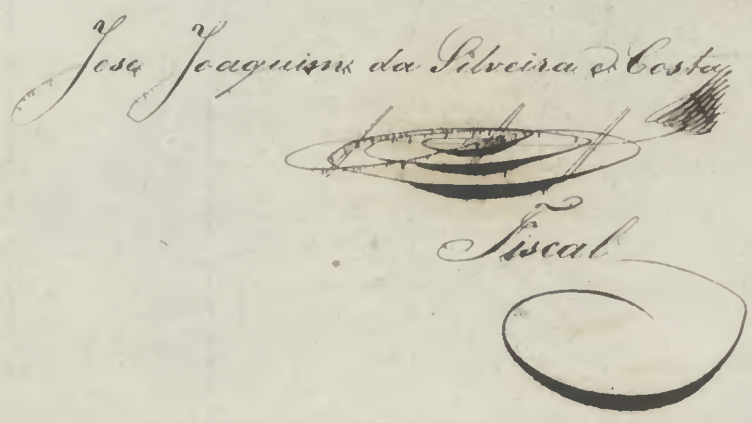 José Joaquim da Silveira e Costa
Fiscal